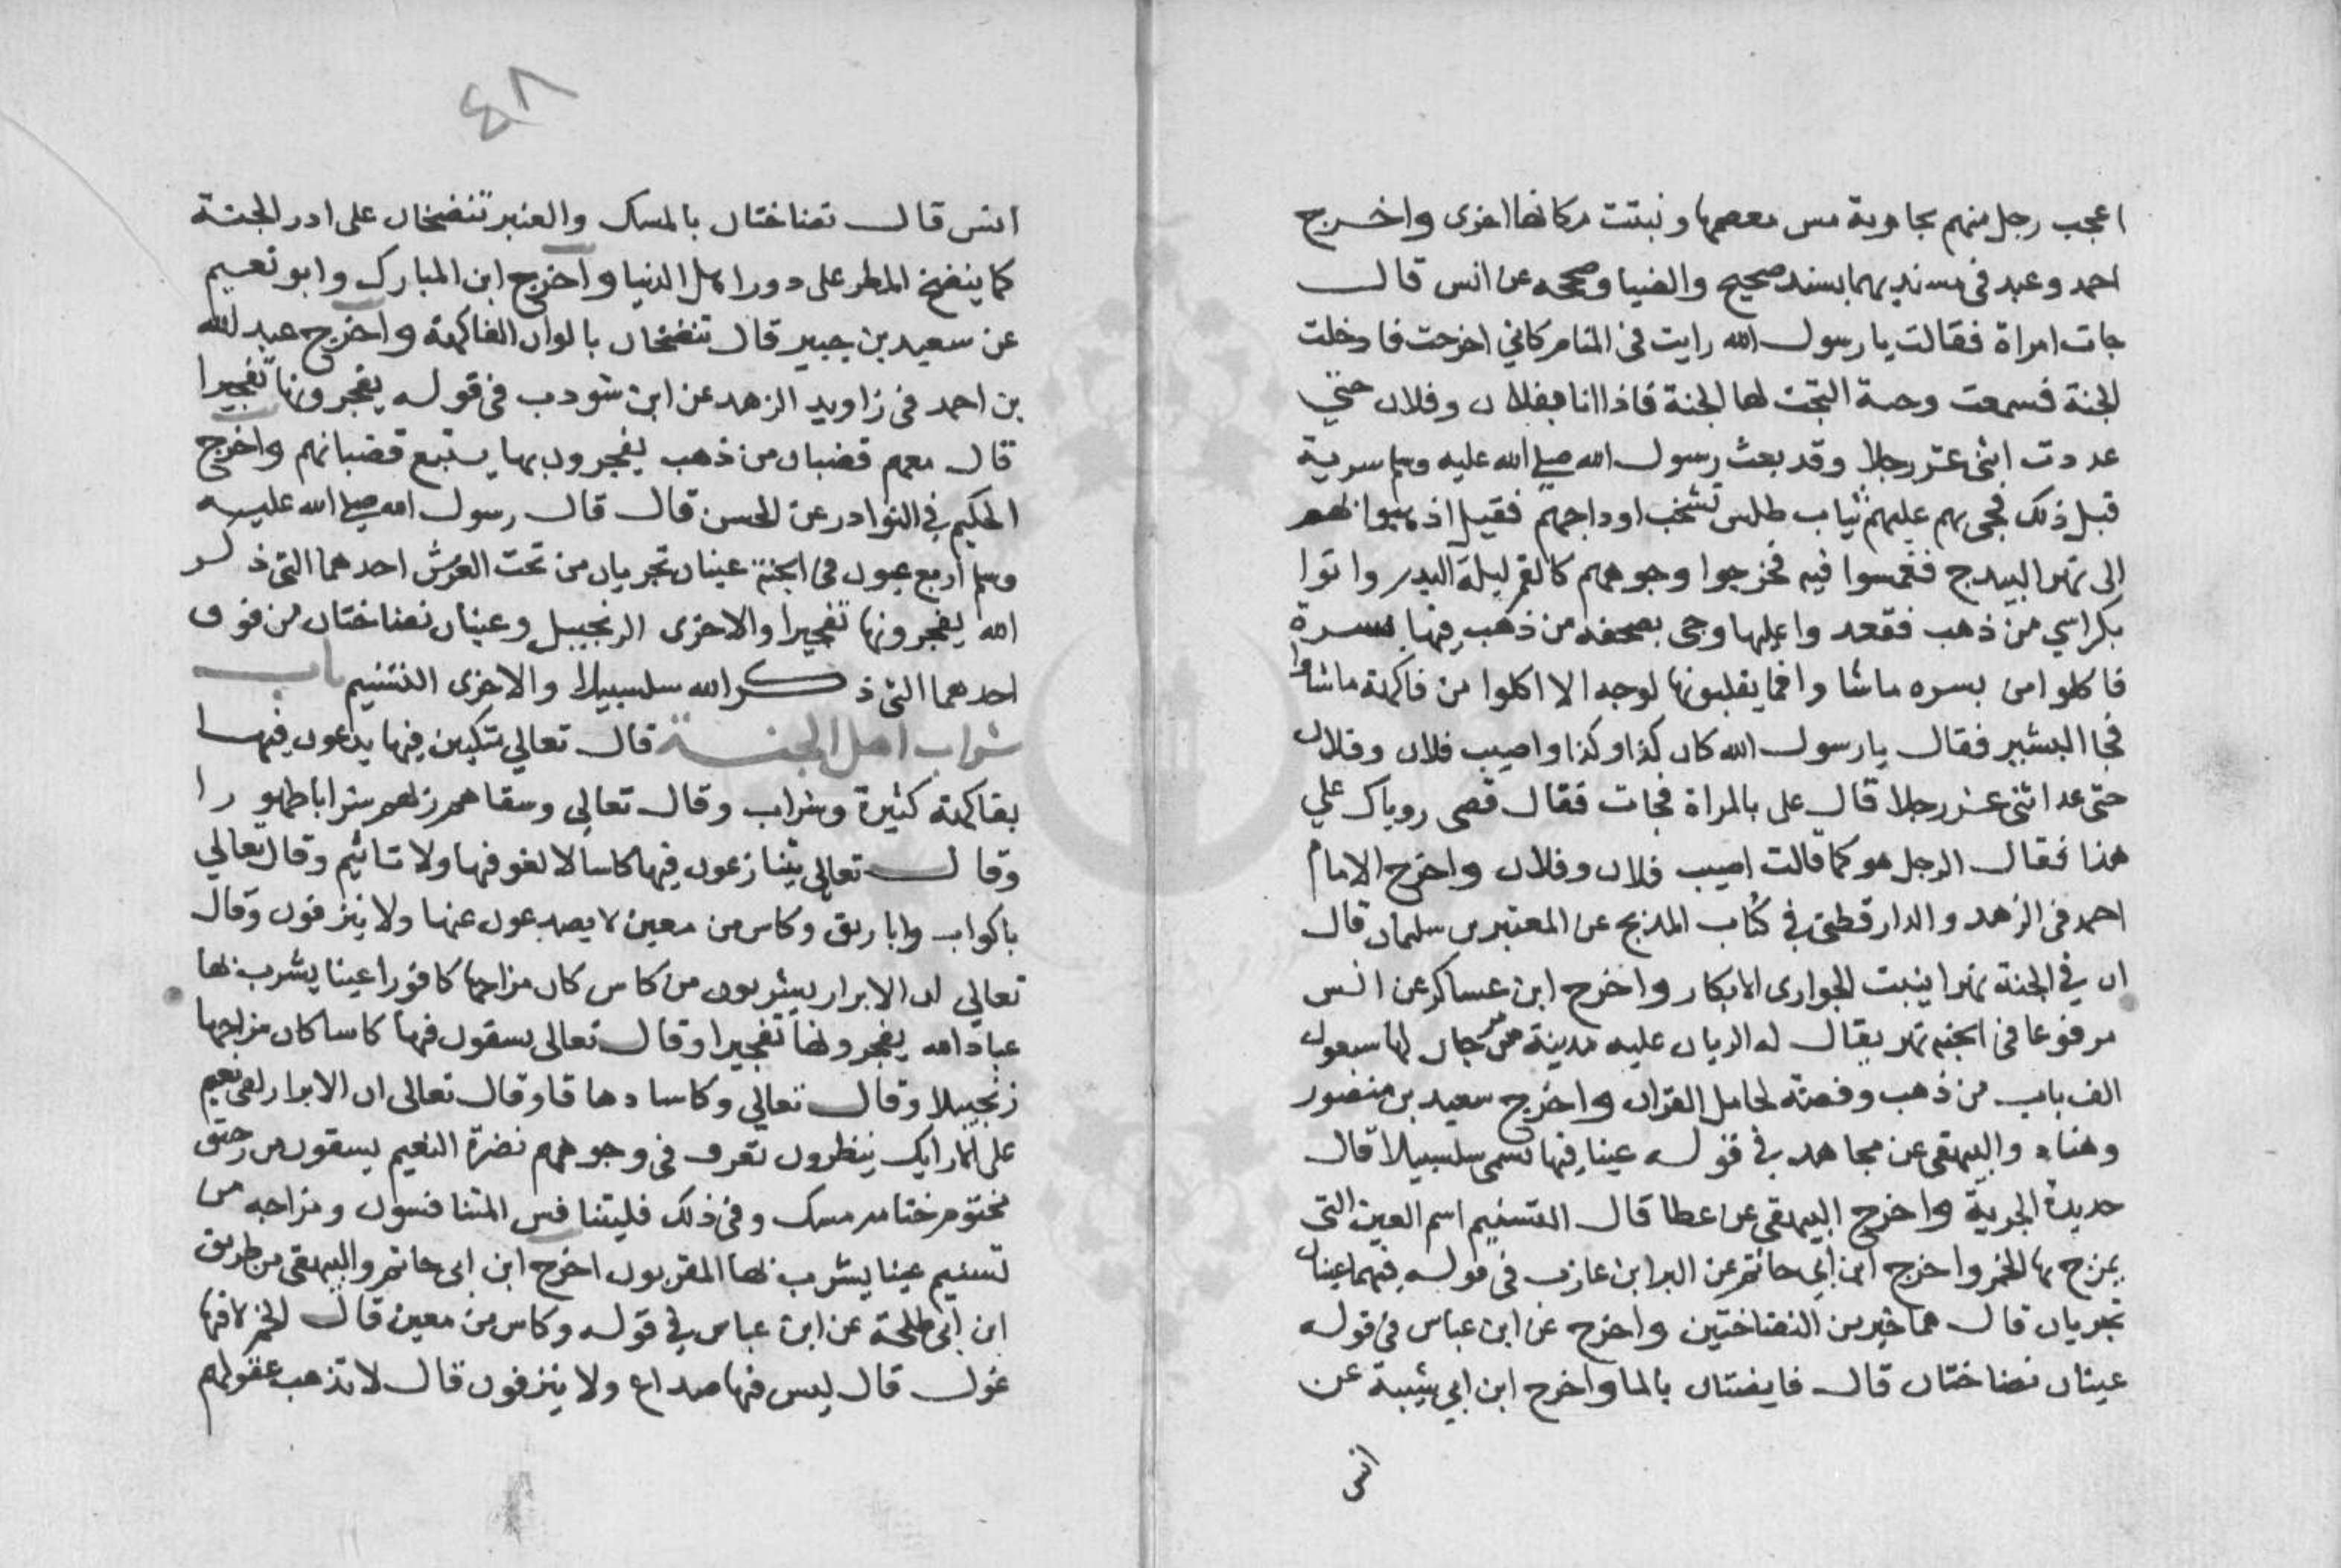 اعجب رجل منهم بجارية مس معصمها ونبتت مكانها اخرى واخرج
احمد وعبد فى مسنديهما بسند صحيح والضيا وصححه عن انس قال
جات امراة فقالت يا رسول الله رايت فى المنام كاني اخرجت فادخلت
الجنة فسمعت وجبة التجت لها الجنة فاذا انا بفلان وفلان حتي
عددت اثنى عشر رجلا وقد بعث رسول الله صلى الله عليه وسلم سرية
قبل ذلك فجى بهم عليهم ثياب طلس تشخب اوداجهم فقيل اذهبوا بهم
الى نهر البيدج فغمسوا فيه فخرجوا وجوههم كالقمر ليلة البدر واتوا
بكراسي من ذهب فقعدوا عليها وجى بصحفه من ذهب فيها بسرة
فاكلوا من بسره ماشاوا فما يقلبونها لوجه الا اكلوا من فاكهة ماشاوا
فجا البشير فقال يا رسول الله كان كذا وكذا واصيب فلان وفلان
حتى عد اثنى عشر رجلا قال على بالمراة فجات فقال قصى روياك علي
هذا فقال الرجل هو كما قالت اصيب فلان وفلان واخرج الامام
احمد فى الزهد والدارقطنى في كتاب المدبج عن المعتمر بن سليمان قال
ان في الجنة نهرا ينبت الجوارى الابكار واخرج ابن عساكر عن انس
مرفوعا فى الجنه نهر يقال له الريان عليه مدينة من مرجان لها سبعون
الف باب من ذهب وفضة لحامل القران واخرج سعيد بن منصور
وهناد والبيهقى عن مجاهد في قوله عينا فيها تسمى سلسبيلا قال
حديدة الجرية واخرج البيهقى عن عطا قال التسنيم اسم العين التى
يمزج بها الخمر واخرج ابن ابي حاتم عن البرا بن عازب فى قوله فيهما عينان
تجريان قال هما خير من النضاختين واخرج عن ابن عباس فى قوله
عينان نضاختان قال فايضتان بالما واخرج ابن ابي شيبة عن
انس
٤٨
انس قال نضاختان بالمسك والعنبر تنضخان على ادر الجنة
كما ينضخ المطر على دور اهل الدنيا واخرج ابن المبارك وابو نعيم
عن سعيد بن جبير قال تنضخان بالوان الفاكهة واخرج عبد الله
بن احمد فى زاويد الزهد عن ابن شودب فى قوله يفجرونها تفجيرا
قال معهم قضبان من ذهب يفجرون بها يتبع قضبانهم واخرج
الحكيم في النوادر عن الحسن قال قال رسول الله صلى الله عليه
وسلم اربع عيون فى الجنة عينان تجريان من تحت العرش احدهما التى ذكر
الله يفجرونها تفجيرا والاخرى الزنجبيل وعينان نضاختان من فوق
احدهما التى ذكر الله سلسبيلا والاخرى التسنيم باب
شراب اهل الجنة قال تعالي متكين فيها يدعون فيها
بفاكهة كثيرة وشراب وقال تعالى وسقاهم ربهم شرابا طهورا
وقال تعالى يتنازعون فيها كاسا لا لغو فيها ولا تاثيم وقال تعالي
باكواب واباريق وكاس من معين لا يصدعون عنها ولا ينزفون وقال
تعالي ان الابرار يشربون من كاس كان مزاجها كافورا عينا يشرب بها
عباد الله يفجرونها تفجيرا وقال تعالى يسقون فيها كاسا كان مزاجها
زنجبيلا وقال تعالي وكاسا دهاقا وقال تعالى ان الابرار لفى نعيم
على الارايك ينظرون تعرف فى وجوههم نضرة النعيم يسقون من رحيق
مختوم ختامه مسك وفى ذلك فليتنافس المتنافسون ومزاجه من
تسنيم عينا يشرب بها المقربون اخرج ابن ابى حاتم والبيهقى من طريق
ابن ابى طلحة عن ابن عباس في قوله وكاس من معين قال الخمر لا فيها
غول قال ليس فيها صداع ولا ينزفون قال لا تذهب عقولهم